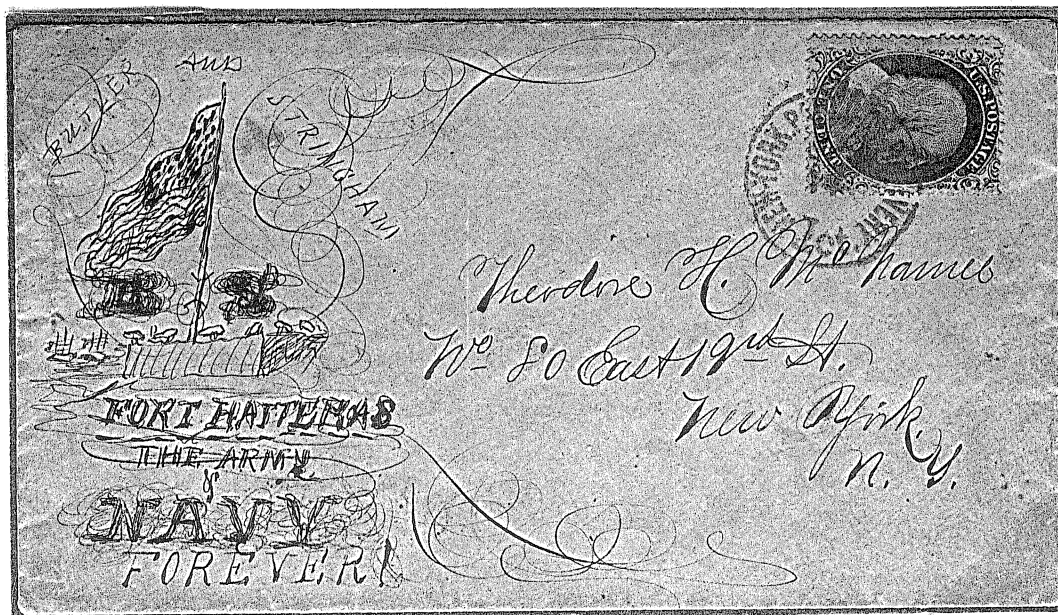 BUTLER
AND
STRINGHAM
FORT HATTERAS
THE ARMY
&
NAVY
FOREVER!
U.S. POSTAGE
ONE CENT
NEW-YORK.
Theodore H. McNamee
No 80 East 19th St.
New York.
N. Y.